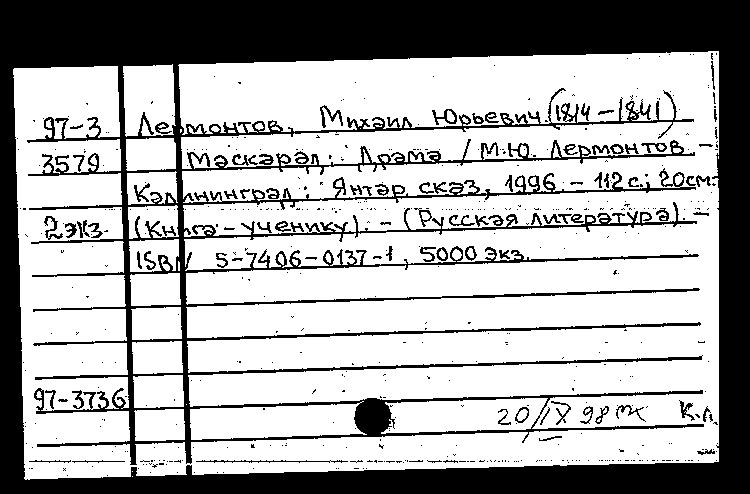 97-3 Лермонтов, Михаил Юрьевич (1814-1841)
3579 Маскарад: Драма / М.Ю. Лермонтов. -
Калининград: Янтар сказ, 1996. - 112 с.; 20см.
2экз. (Книга-ученику). - (Русская литература). -
ISBN 5-7406-0137-1, 5000 экз.
97-3736
20/IX 98 К.л.